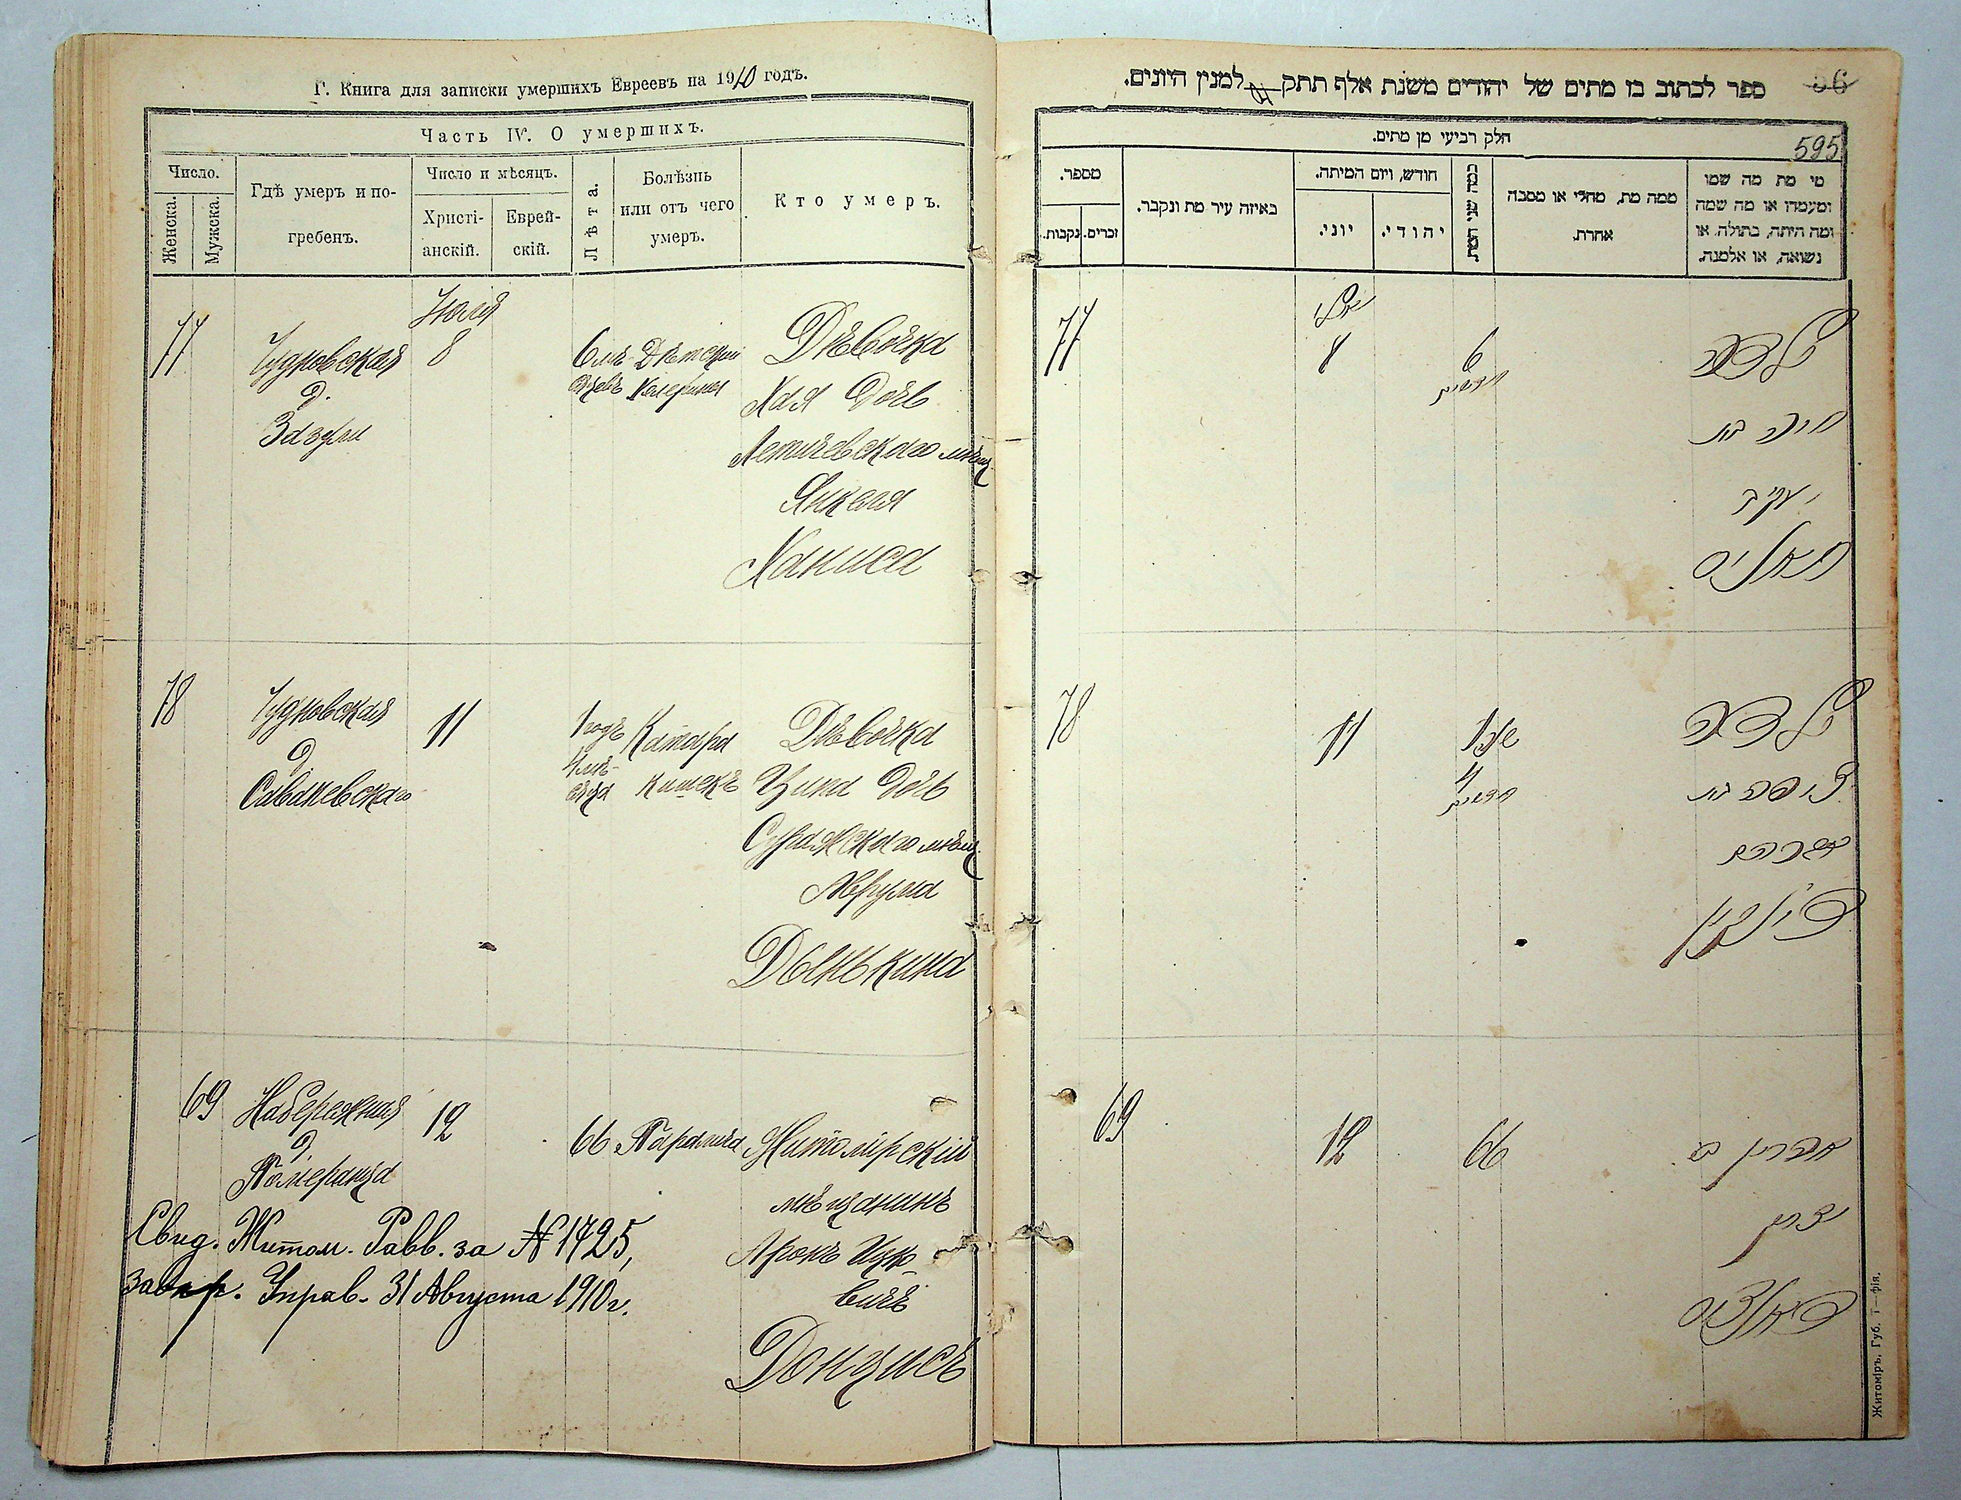 Г. Книга для записки умершихъ Евреевъ на 1910 годъ.
Часть IV. О умершихъ.
Число.
Женска.
Мужска.
Гдѣ умеръ и по-
гребенъ.
Число и мѣсяцъ.
Христі-
анскій.
Еврей-
скій.
Лѣта.
Болѣзнь
или отъ чего
умеръ.
Кто умеръ.
77
Чудновская
д.
Іюля
8
6 мѣ-
сяцевъ
Дѣтская
Холерина
Дѣвочка
Хая дочь
Летичевскаго мѣщ.
Янкеля
Ханиса
78
Чудновская
д.
Саваневскаго
11
1 годъ
4 мѣ-
сяца
Катарр
кишекъ
Дѣвочка
Ципа дочь
Суражскаго мѣщ.
Аврума
Донькина
69
Набережная
д.
Померанца
12
66
Параличъ
Житомірскій
мѣщанинъ
Аронъ Ицко
вичъ
Донцисъ
Свид. Житом. Равв. за № 1425,
Управ. 31 Августа 1910 г.
ספר לכתוב בו מתים של יהודים משנת אלף תתק למנין היונים.
56
595
חלק רביעי מן מתים.
מספר.
נקבות.
זכרים.
באיזה עיר מת ונקבר.
חודש, ויום המיתה.
יוני.
יהודי.
כמה שני המת.
ממה מת, מחלי או מסבה
אחרת.
מי מת מה שמו
ומעמדו או מה שמה
ומה היתה, בתולה או
נשואה, או אלמנה.
77
יולי
8
6
חדשים
ילדה
חיה בת
יעקב
חאניס
78
11
שנה 1
4
חדשים
ילדה
ציפה בת
אברהם
דונקין
69
12
66
אהרן ב
יצחק
דאנציס
Житоміръ, Губ. Т—фія.